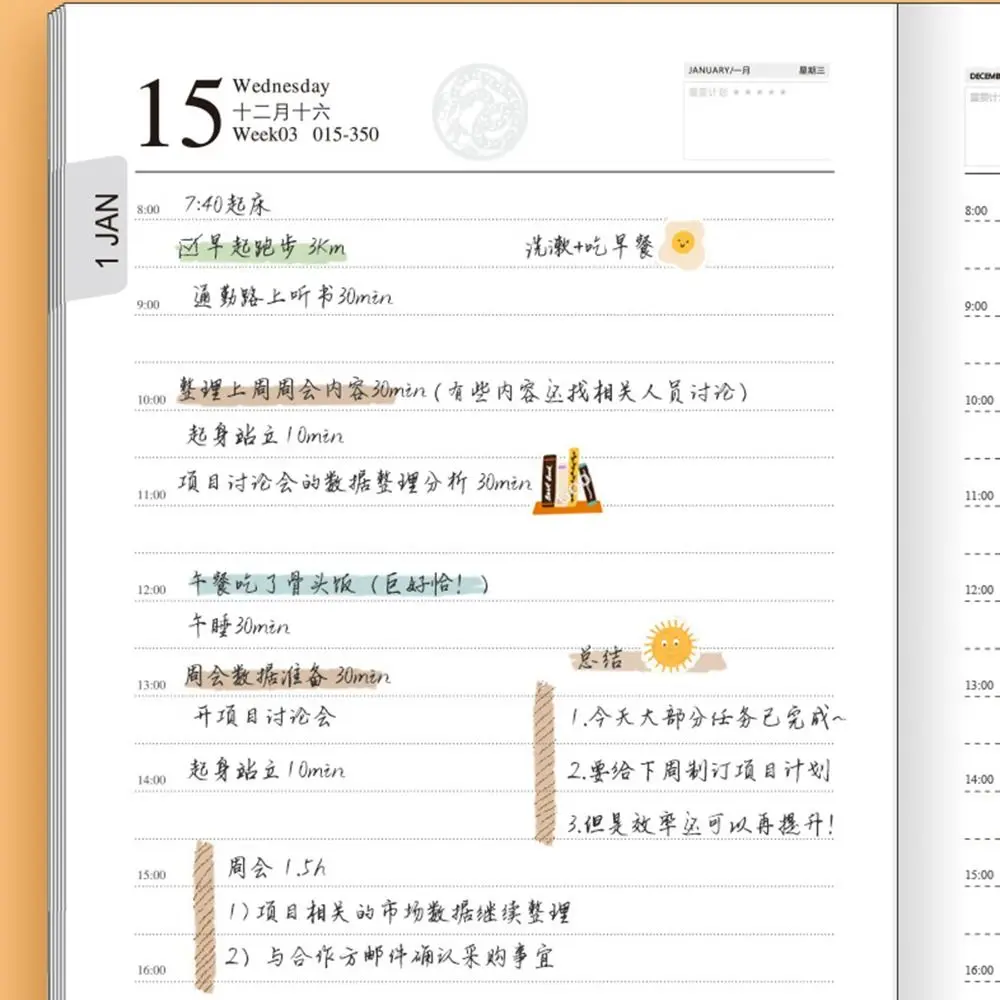 15
Wednesday
十二月十六
Week03 015-350
JANUARY/一月 星期三
重要计划 ★★★★★
1 JAN
8:00 7:40起床
☑早起跑步 3Km 洗漱+吃早餐
9:00 通勤路上听书30min
10:00 整理上周周会内容30min(有些内容还找相关人员讨论)
起身站立10min
11:00 项目讨论会的数据整理分析 30min
12:00 午餐吃了骨头饭(巨好恰!)
午睡30min
总结
13:00 周会数据准备 30min
开项目讨论会
1.今天大部分任务已完成~
14:00 起身站立10min
2.要给下周制订项目计划
3.但是效率还可以再提升!
15:00 周会 1.5h
1)项目相关的市场数据继续整理
16:00 2) 与合作方邮件确认采购事宜
DECEMB
重要计
8:00
9:00
10:00
11:00
12:00
13:00
14:00
15:00
16:00